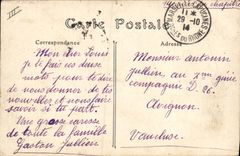 Carte Postale
Correspondance
Adresse
29-10
14
Mon cher Louis
je te fais ces deux
mots pour te dire
de nous donner de tes
nouvelles et nous faire
savoir si tu pars.
Une grosse caresse
de toute la famille
Gaston Jullien
Monsieur Antonin
Jullien, au 7ème génie
compagnie D. 26.
Avignon.
Vaucluse.